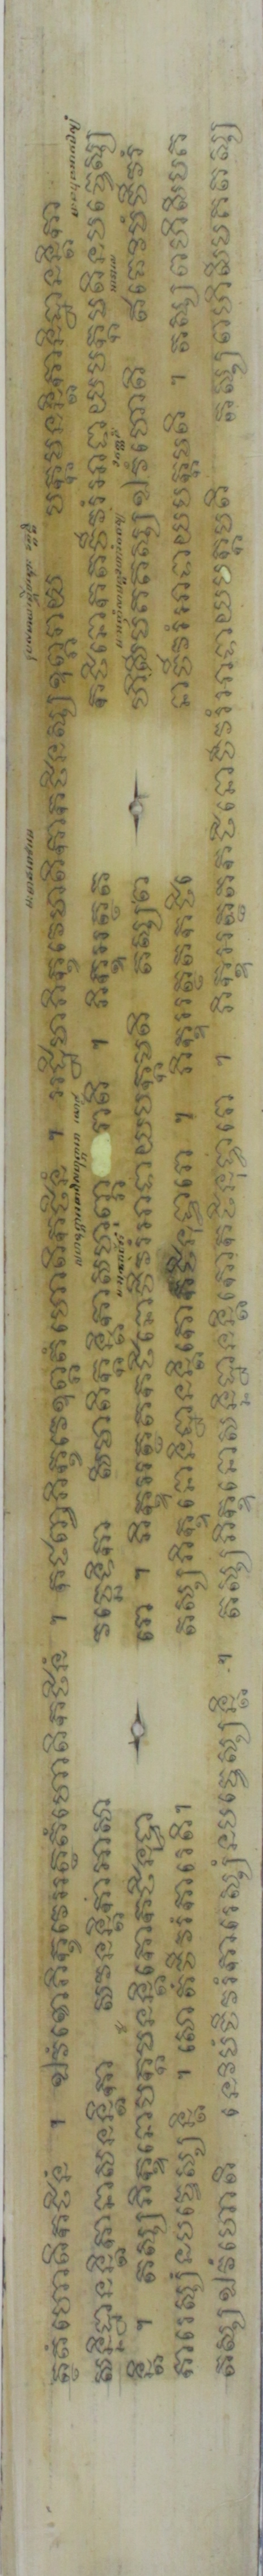 ត្ថតំហោតិកឋិនំ ។ ឯវំខោភិក្ខវេអត្ថតំហោតិកឋិនំ ។ កថញ្ចភិក្ខវេឧព្ភតំហោតិកឋិនំ ។ អដ្ឋិមាភិក្ខវេមាតិកាកឋិនស្សឧព្ភារាយ បក្កមនន្តិកានិដ្ឋានន្តិកា
សន្និដ្ឋានន្តិកានាសនន្តិកា សវនន្តិកាអាសា វច្ឆេទិកា សីមាតិក្កន្តិកាសហុព្ភា រាតិ ។ ភិក្ខុអត្ថត កឋិនោកតចីវរំអាទាយបក្កមតិនបច្ចេស្ស
ន្តិ ។ តស្សភិក្ខុនោបក្កមនន្តិកោកឋិនុទ្ធា រោ ។ ភិក្ខុអត្ថតកឋិនោចីវរំអាទាយបក្កមតិ តស្សព ហិសីមគតស្សឯវំហោតិ ឥធេវិមំចីវរំ
ការេស្សំនបច្ចេស្សន្តិ ។ សោតំចីវរំការេតិ។ តស្សភិក្ខុនោនិដ្ឋានន្តិកោកឋិនុទ្ធារោ ។ ភិក្ខុអត្ថតកឋិ នោចីវរំអាទាយបក្កមតិ ។ តស្សពហិសីមគ
តស្សឯវំហោតិ នេវិមំចីវរំការេស្សំនបច្ចេស្សន្តិ ។ តស្សភិក្ខុនោសន្និដ្ឋានន្តិកោកឋិនុទ្ធារោ ។ ភិក្ខុអត្ថតកឋិនោចីវរំអាទាយបក្កមតិ តស្សពហិសីមគតស្ស